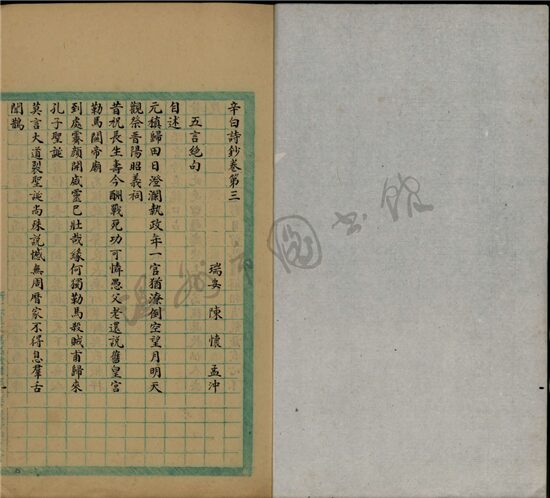 辛白詩鈔卷第三
瑞安 陳懷 孟沖
五言絕句
自述
元稹歸田日澄瀾執政年一官猶潦倒空望月明天
觀祭晉陽昭義祠
昔祝長生壽今酬戰死功可憐愚父老還說舊皇宮
勒馬關帝廟
到處塞顏開威靈已壯哉緣何獨勒馬殺賊甫歸來
孔子聖誕
莫言大道裂聖誕尚殊說憾無周曆家不得息羣舌
聞鵲
溫州市圖書館